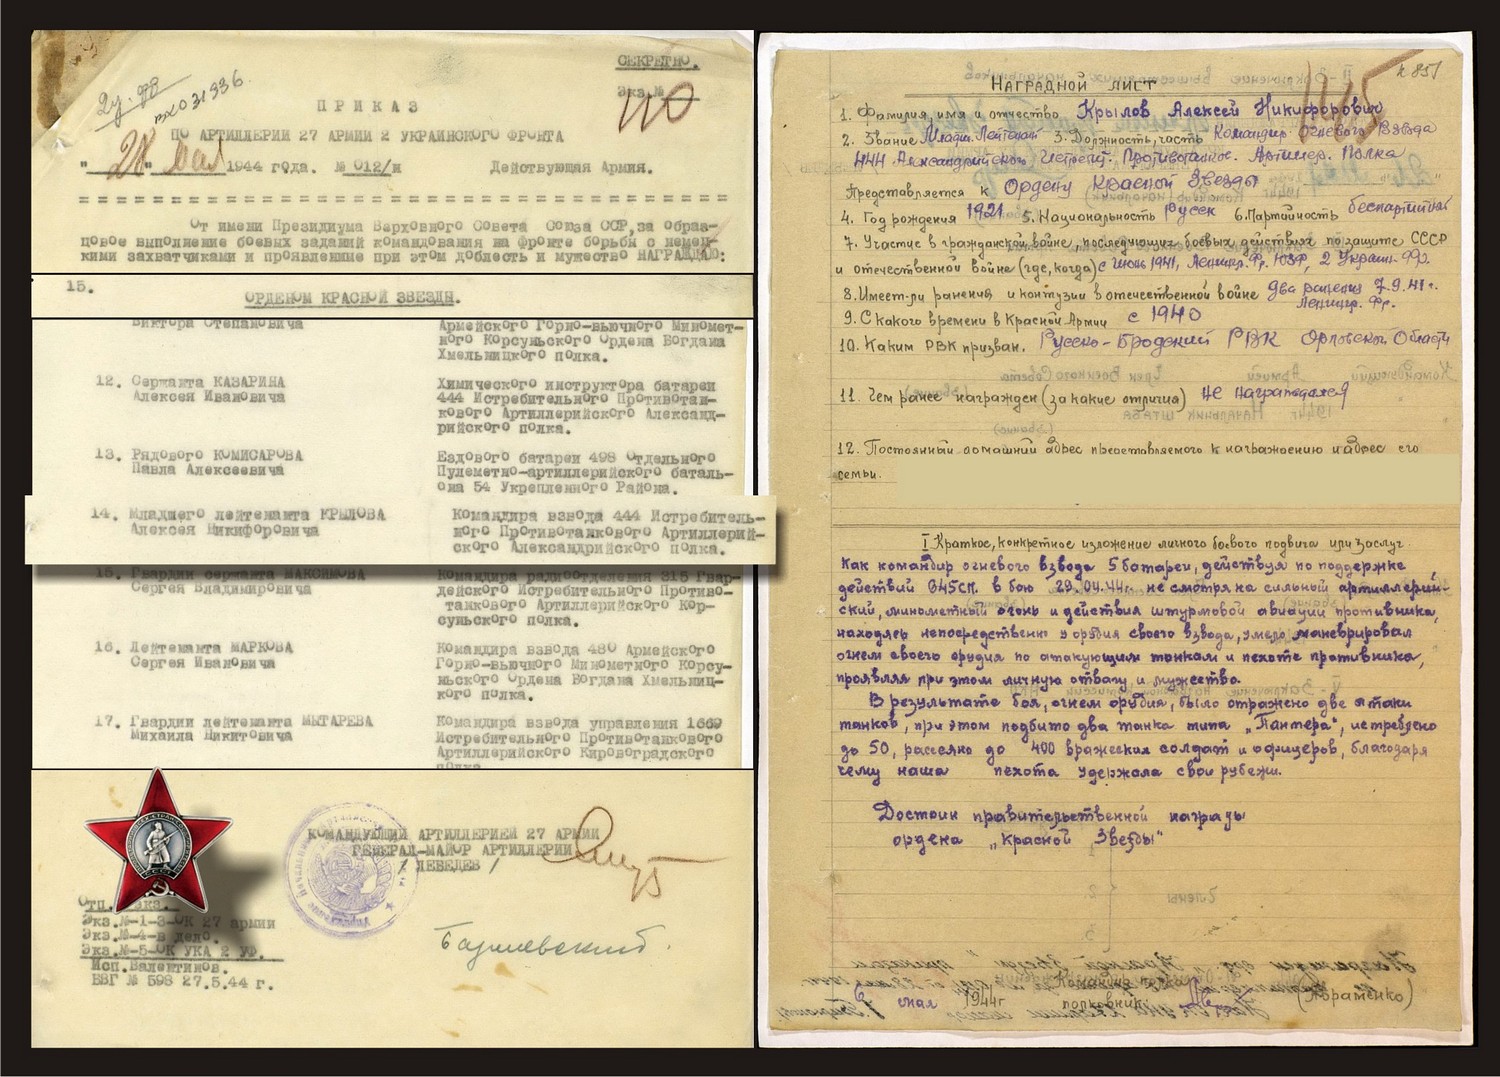 СЕКРЕТНО.
Экз.№
110
вх 031936
ПРИКАЗ
ПО АРТИЛЛЕРИИ 27 АРМИИ 2 УКРАИНСКОГО ФРОНТА
"28" мая 1944 года. № 012/н Действующая Армия.
От имени Президиума Верховного Совета Союза ССР, за образ-
цовое выполнение боевых заданий командования на фронте борьбы с немец-
кими захватчиками и проявленные при этом доблесть и мужество НАГРАЖДАЮ:
15.
ОРДЕНОМ КРАСНОЙ ЗВЕЗДЫ.
Виктора Степановича Армейского Горно-вьючного Миномет-
ного Корсуньского Ордена Богдана
Хмельницкого полка.
12. Сержанта КАЗАРИНА Химического инструктора батареи
Алексея Ивановича 444 Истребительного Противотан-
кового Артиллерийского Александ-
рийского полка.
13. Рядового КОМИСАРОВА Ездового батареи 498 Отдельного
Павла Алексеевича Пулеметно-артиллерийского баталь-
она 54 Укрепленного Района.
14. Младшего лейтенанта КРЫЛОВА Командира взвода 444 Истребитель-
Алексея Никифоровича ного Противотанкового Артиллерий-
ского Александрийского полка.
15. Гвардии сержанта МАКСИМОВА Командира радиоотделения 315 Гвар-
Сергея Владимировича дейского Истребительного Противо-
танкового Артиллерийского Кор-
суньского полка.
16. Лейтенанта МАРКОВА Командира взвода 480 Армейского
Сергея Ивановича Горно-вьючного Минометного Корсу-
ньского Ордена Богдана Хмельницк-
ого полка.
17. Гвардии лейтенанта МЫТАРЕВА Командира взвода управления 1669
Михаила Никитовича Истребительного Противотанкового
Артиллерийского Кировоградского
полка.
КОМАНДУЮЩИЙ АРТИЛЛЕРИЕЙ 27 АРМИИ
ГЕНЕРАЛ-МАЙОР АРТИЛЛЕРИИ
/ ЛЕБЕДЕВ /
Отп. экз.
Экз.№-1-3-ОК 27 армии
Экз.№-4-в дело.
Экз.№-5-ОК УКА 2 УФ.
Исп.Валентинов.
ВВГ № 598 27.5.44 г.
НАГРАДНОЙ ЛИСТ
1. Фамилия, имя и отчество Крылов Алексей Никифорович
2. Звание Младш. Лейтенант 3. Должность, часть Командир огневого взвода
444 Александрийского Истребит. Противотанков. Артилер. Полка
Представляется к Ордену Красной Звезды
4. Год рождения 1921 5. Национальность Русск 6. Партийность беспартийный
7. Участие в гражданской войне, последующих боевых действиях по защите СССР
и отечественной войне (где, когда) с Июнь 1941, Ленингр. Фр. ЮЗФ, 2 Украин. Фр.
8. Имеет-ли ранения и контузии в отечественной войне Два ранения 7.9.41 г.
Ленингр. Фр.
9. С какого времени в Красной Армии с 1940
10. Каким РВК призван. Русско-Бродский РВК Орловской Области
11. Чем ранее награжден (за какие отличия) не награждался
12. Постоянный домашний адрес представляемого к награждению и адрес его
семьи.
I Краткое, конкретное изложение личного боевого подвига или заслуг.
Как командир огневого взвода 5 батареи, действуя по поддержке
действий 645СП. в бою 29.04.44г. не смотря на сильный артиллерий-
ский, минометный огонь и действия штурмовой авиации противника,
находясь непосредственно у орудия своего взвода, умело маневрировал
огнем своего орудия по атакующим танкам и пехоте противника,
проявляя при этом личную отвагу и мужество.
В результате боя, огнем орудия, было отражено две атаки
танков, при этом подбито два танка типа „Пантера", истреблено
до 50, рассеяно до 400 вражеских солдат и офицеров, благодаря
чему наша пехота удержала свои рубежи.
Достоин правительственной награды
ордена „Красной Звезды"
Командир полка
6 мая 1944г полковник (Авраменко)